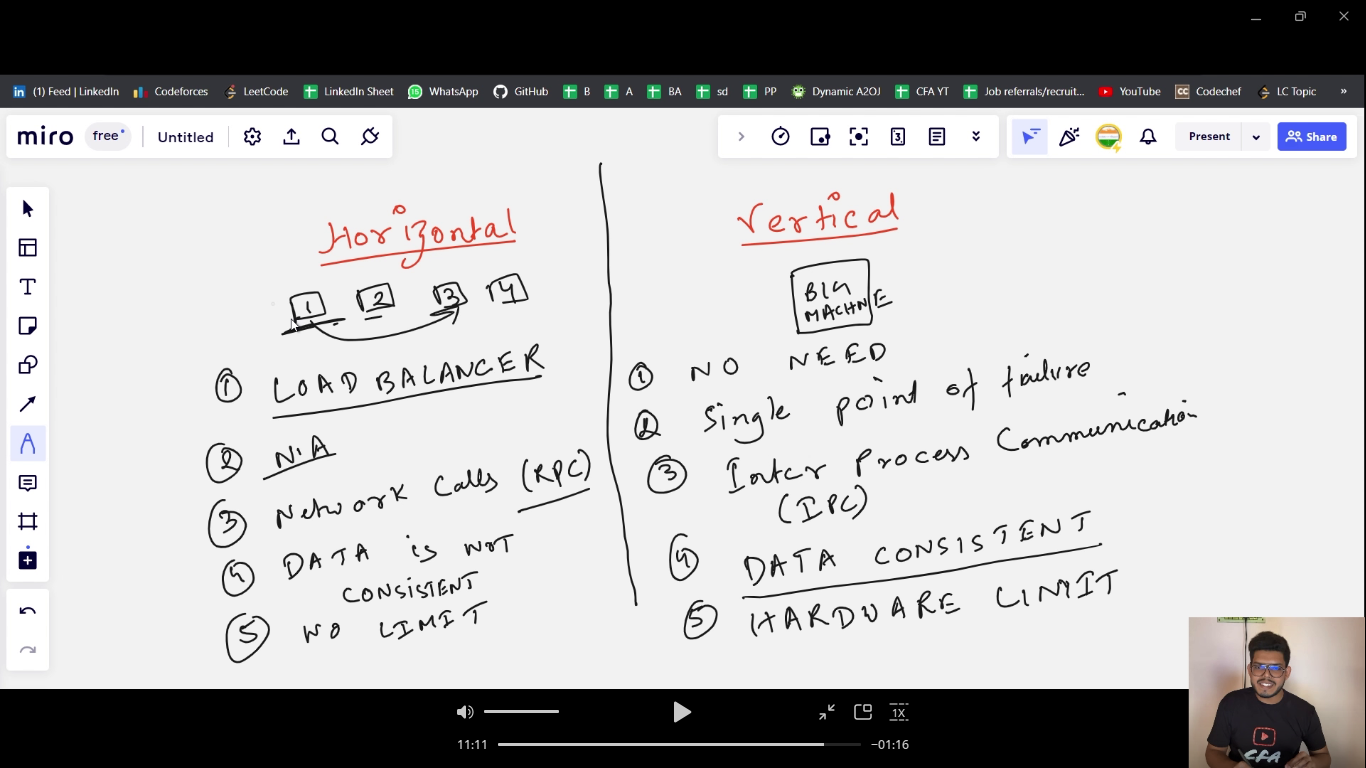 (1) Feed | LinkedIn
Codeforces
LeetCode
LinkedIn Sheet
WhatsApp
GitHub
B
A
BA
sd
PP
Dynamic A2OJ
CFA YT
Job referrals/recruit...
YouTube
CC Codechef
LC Topic
»
miro
free
Untitled
3
Present
Share
Horizontal
1 2 3 4
① LOAD BALANCER
② N.A
③ Network calls (RPC)
④ DATA is NOT
CONSISTENT
⑤ NO LIMIT
Vertical
BIG
MACHNE
① NO NEED
② Single point of failure
③ Inter Process Communication
(IPC)
④ DATA CONSISTENT
⑤ HARDWARE LIMIT
CFA
1X
11:11
−01:16